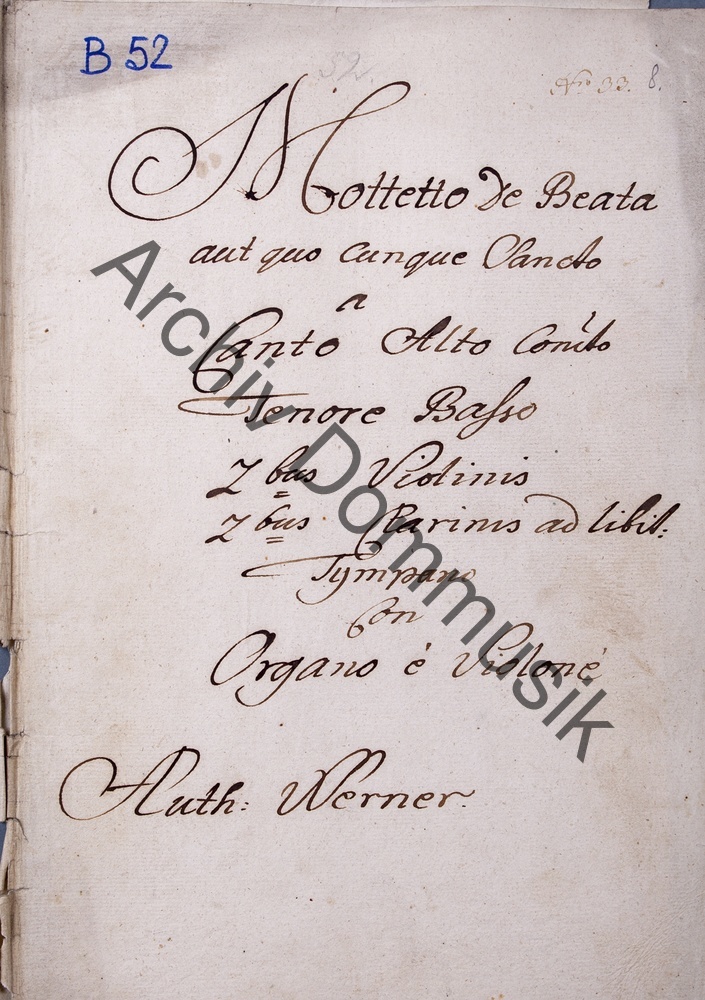 B 52
52.
Nro 33. 8.
Mottetto De Beata
aut quo cunque Sancto
a
Canto Alto Conc̃to
Tenore Basso
2 bus Violinis
2 bus Clarinis ad libit:
Tympano
Con
Organo è Violone
Auth: Werner.
Archiv Dommusik